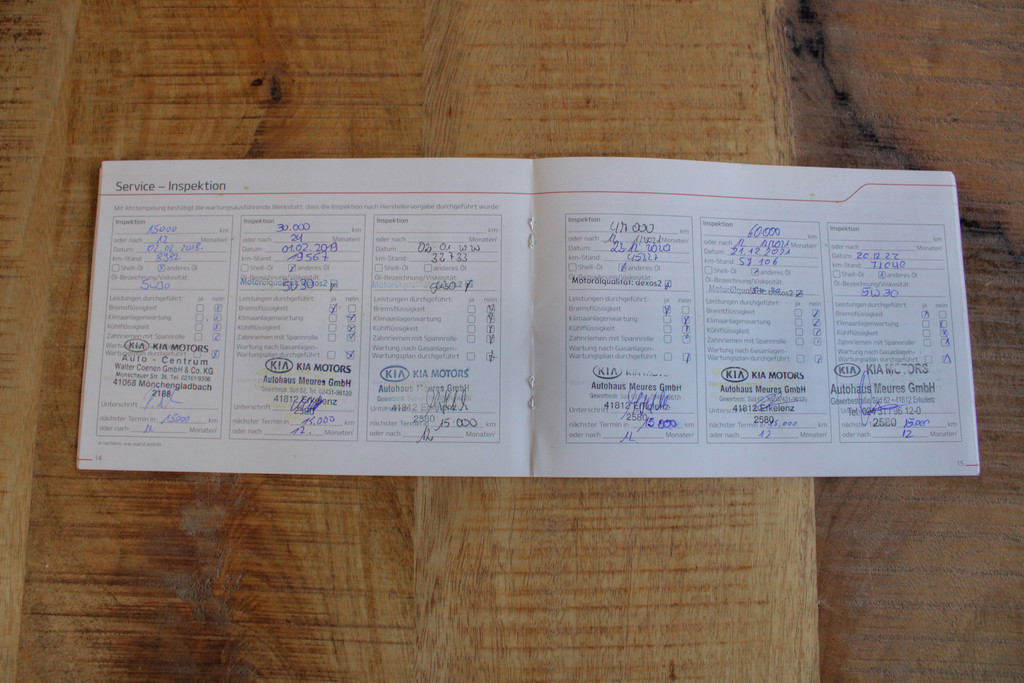 Service – Inspektion
Mit Abstempelung bestätigt die wartungsausführende Werkstatt, dass die Inspektion nach Herstellervorgabe durchgeführt wurde
Inspektion
15000 km
oder nach 12 Monaten
Datum: 02.02.2018
km-Stand 8982
Shell-Öl anderes Öl
Öl-Bezeichnung/Viskosität:
5W30
Leistungen durchgeführt: ja nein
Bremsflüssigkeit
Klimaanlagenwartung
Kühlflüssigkeit
Zahnriemen mit Spannrolle
Wartung nach Gasanlagen-
Wartungsplan durchgeführt
KIA KIA MOTORS
Auto - Centrum
Walter Coenen GmbH & Co. KG
41068 Mönchengladbach
2188
Unterschrift
nächster Termin in 15000 km
oder nach 12 Monaten
14
Inspektion
30.000 km
oder nach 24 Monaten
Datum: 01.02.2019
km-Stand 19567
Shell-Öl anderes Öl
Öl-Bezeichnung/Viskosität:
5W30
Leistungen durchgeführt: ja nein
Bremsflüssigkeit
Klimaanlagenwartung
Kühlflüssigkeit
Zahnriemen mit Spannrolle
Wartung nach Gasanlagen-
Wartungsplan durchgeführt
KIA KIA MOTORS
Autohaus Meures GmbH
41812 Erkelenz
2580
nächster Termin in 15.000 km
oder nach 12. Monaten
Inspektion
km
oder nach Monaten
Datum:
km-Stand 32733
Shell-Öl anderes Öl
Öl-Bezeichnung/Viskosität:
Leistungen durchgeführt: ja nein
Bremsflüssigkeit
Klimaanlagenwartung
Kühlflüssigkeit
Zahnriemen mit Spannrolle
Wartung nach Gasanlagen-
Wartungsplan durchgeführt
KIA KIA MOTORS
Autohaus Meures GmbH
41812 Erkelenz
2580
nächster Termin in 15.000 km
oder nach 12 Monaten
Inspektion
km
oder nach
Datum: 23.12.2020
km-Stand 45227
Shell-Öl anderes Öl
Öl-Bezeichnung/Viskosität:
Motorölqualität: dexos2
Leistungen durchgeführt: ja nein
Bremsflüssigkeit
Klimaanlagenwartung
Kühlflüssigkeit
Zahnriemen mit Spannrolle
Wartung nach Gasanlagen-
Wartungsplan durchgeführt
KIA KIA MOTORS
Autohaus Meures GmbH
41812 Erkelenz
2580
nächster Termin in 15.000 km
oder nach 12 Monaten
Inspektion
60.000 km
oder nach
Datum: 21.12.2021
km-Stand 57106
Shell-Öl anderes Öl
Öl-Bezeichnung/Viskosität:
Leistungen durchgeführt: ja nein
Bremsflüssigkeit
Klimaanlagenwartung
Kühlflüssigkeit
Zahnriemen mit Spannrolle
Wartung nach Gasanlagen-
Wartungsplan durchgeführt
KIA KIA MOTORS
Autohaus Meures GmbH
41812 Erkelenz
2580
nächster Termin in 15.000 km
oder nach 12 Monaten
Inspektion
km
oder nach Monaten
Datum: 20.12.22
km-Stand 71040
Shell-Öl anderes Öl
Öl-Bezeichnung/Viskosität:
5W30
Leistungen durchgeführt: ja nein
Bremsflüssigkeit
Klimaanlagenwartung
Kühlflüssigkeit
Zahnriemen mit Spannrolle
Wartung nach Gasanlagen-
Wartungsplan durchgeführt
KIA KIA MOTORS
Autohaus Meures GmbH
2580
15000 km
oder nach 12 Monaten
15